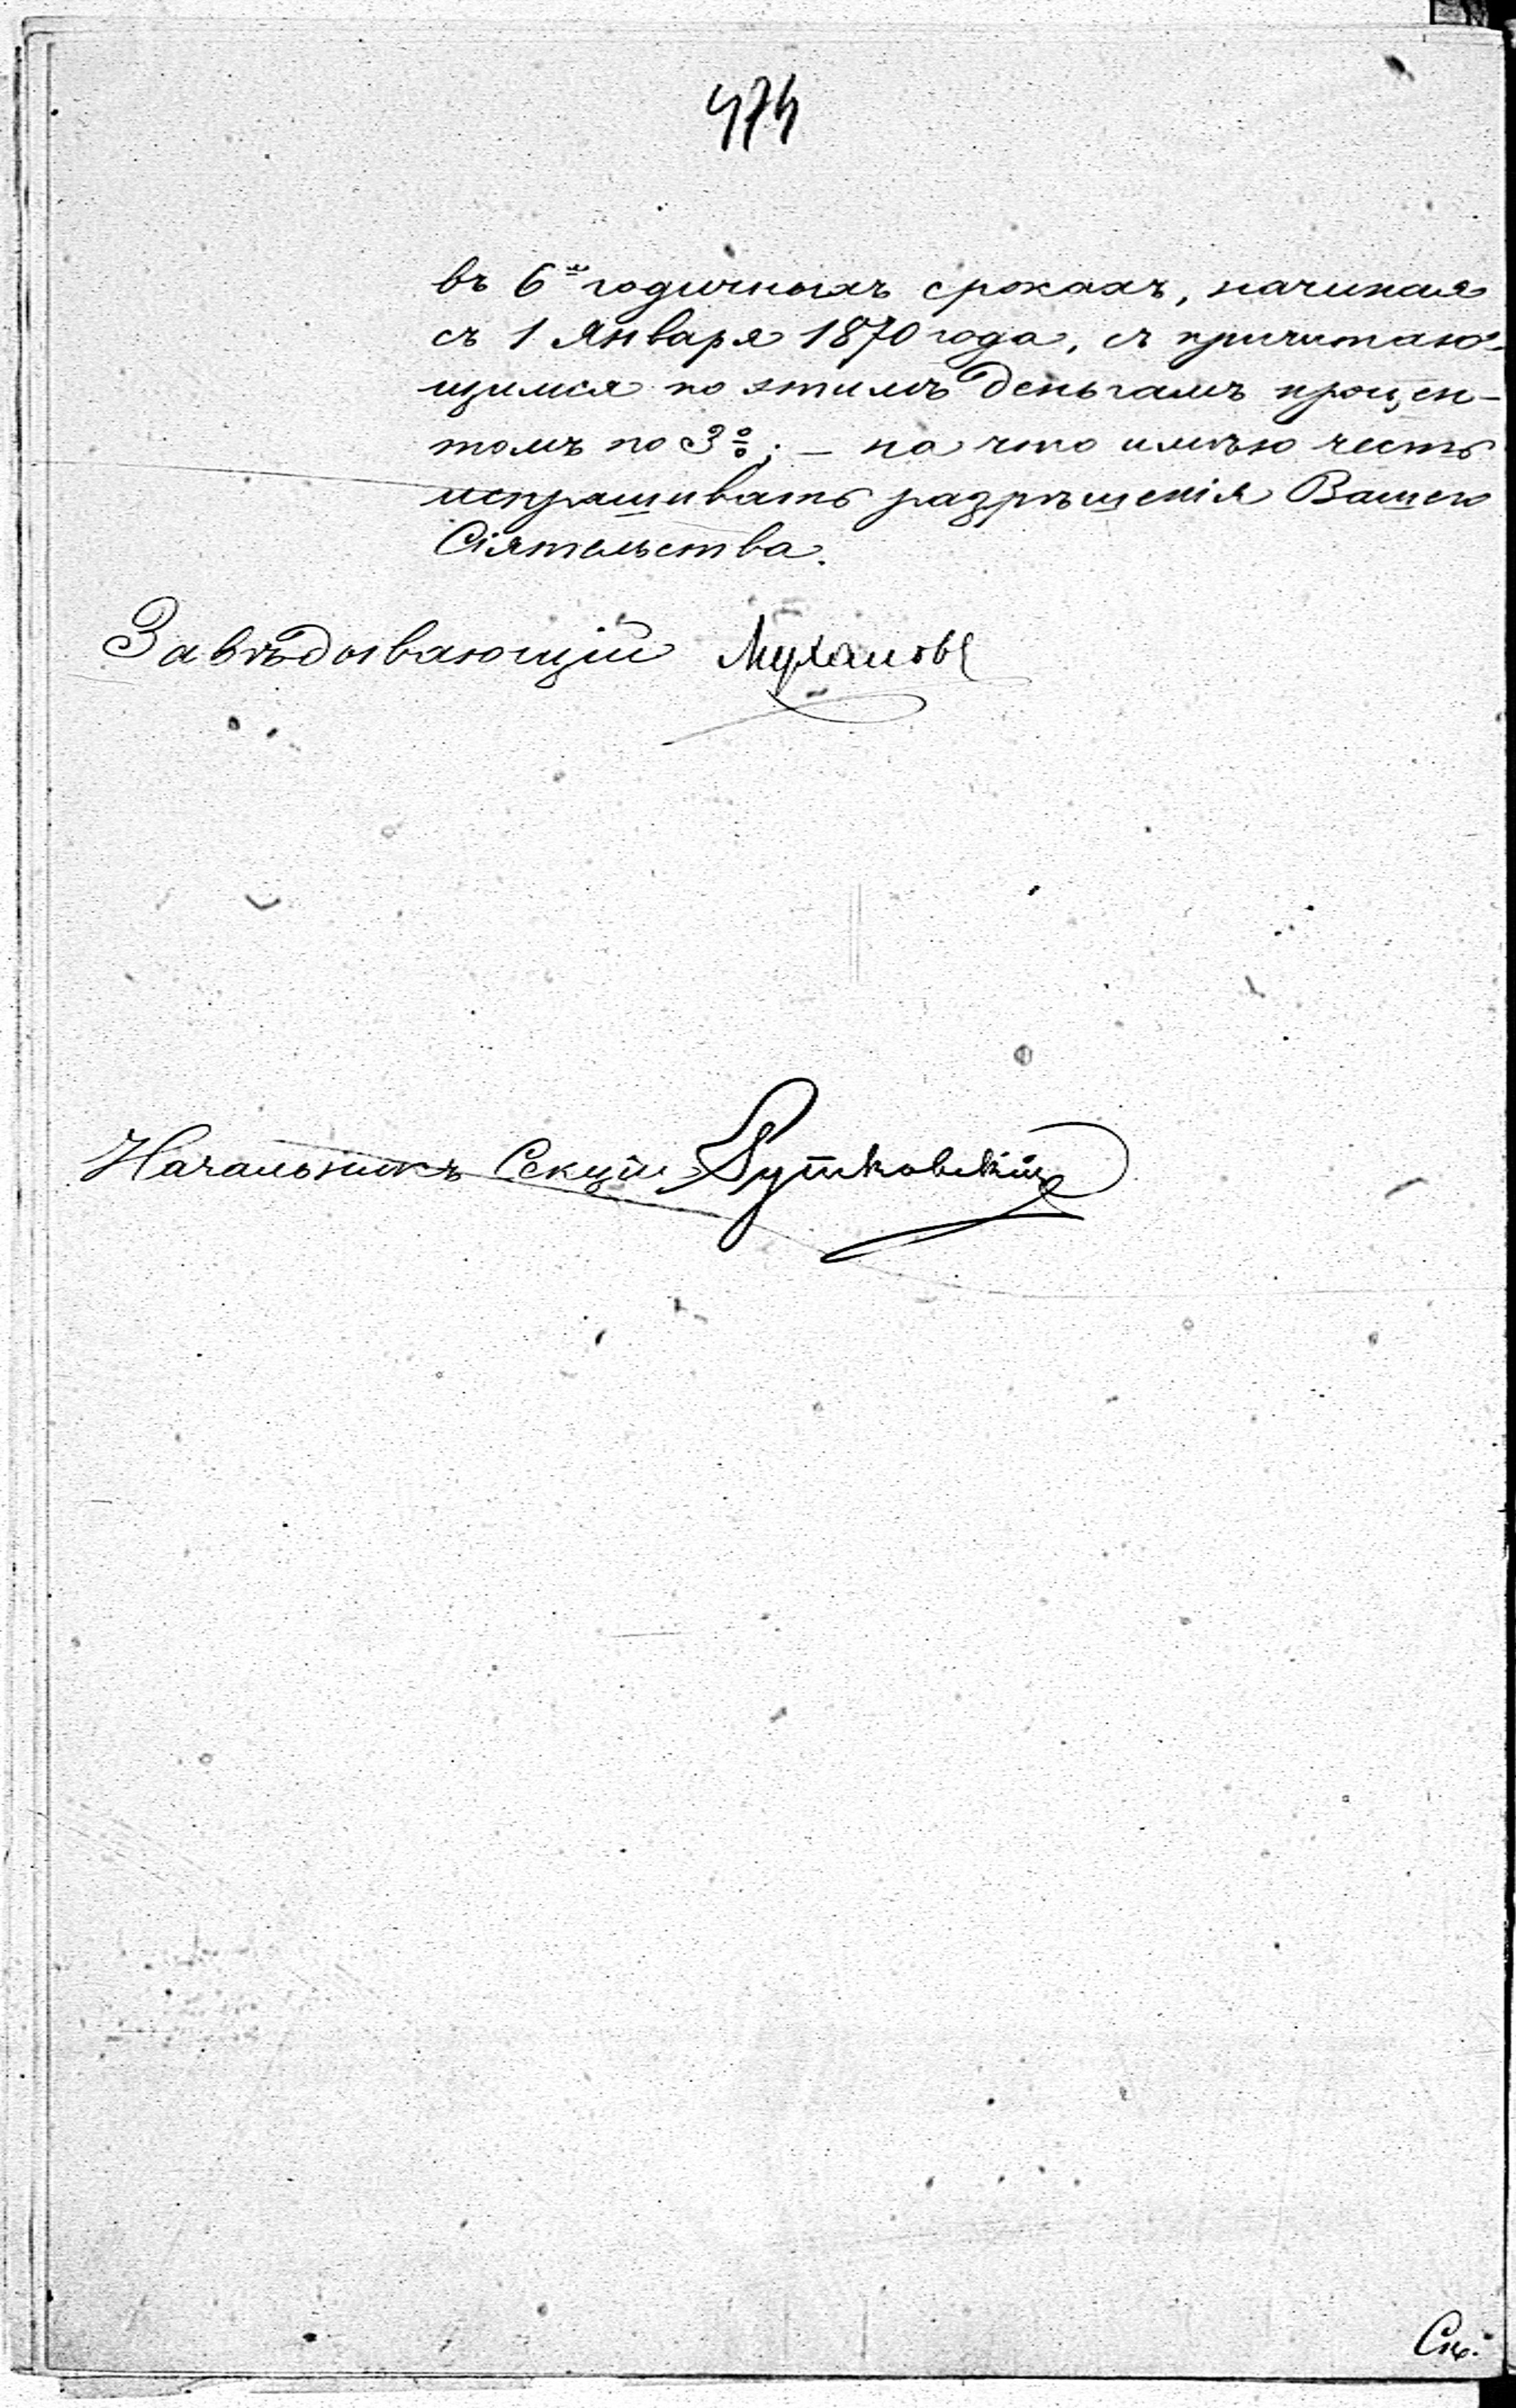 474
въ 6ᵘ годичныхъ срокахъ, начиная
съ 1 Января 1870 года, съ причитаю-
щимся по этимъ деньгамъ процен-
томъ по 3%; — на что имѣю честь
испрашивать разрѣшенія Вашего
Сіятельства.
Завѣдывающій Мухановъ
Начальникъ Секціи Рутковскій